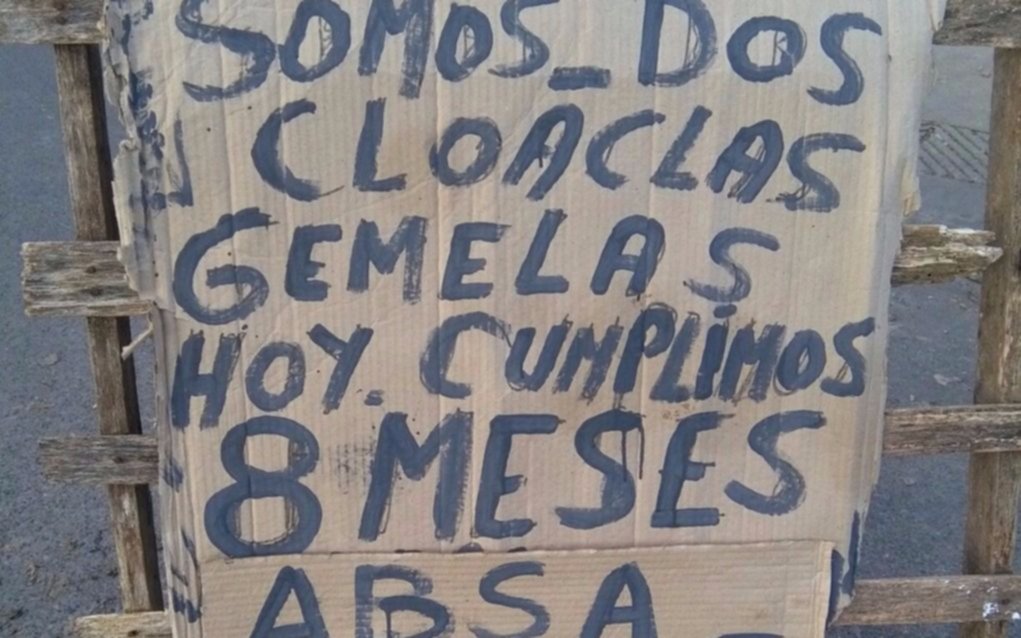 SOMOS_DOS
CLOACLAS
GEMELAS
HOY. CUMPLIMOS
8 MESES
ABSA_